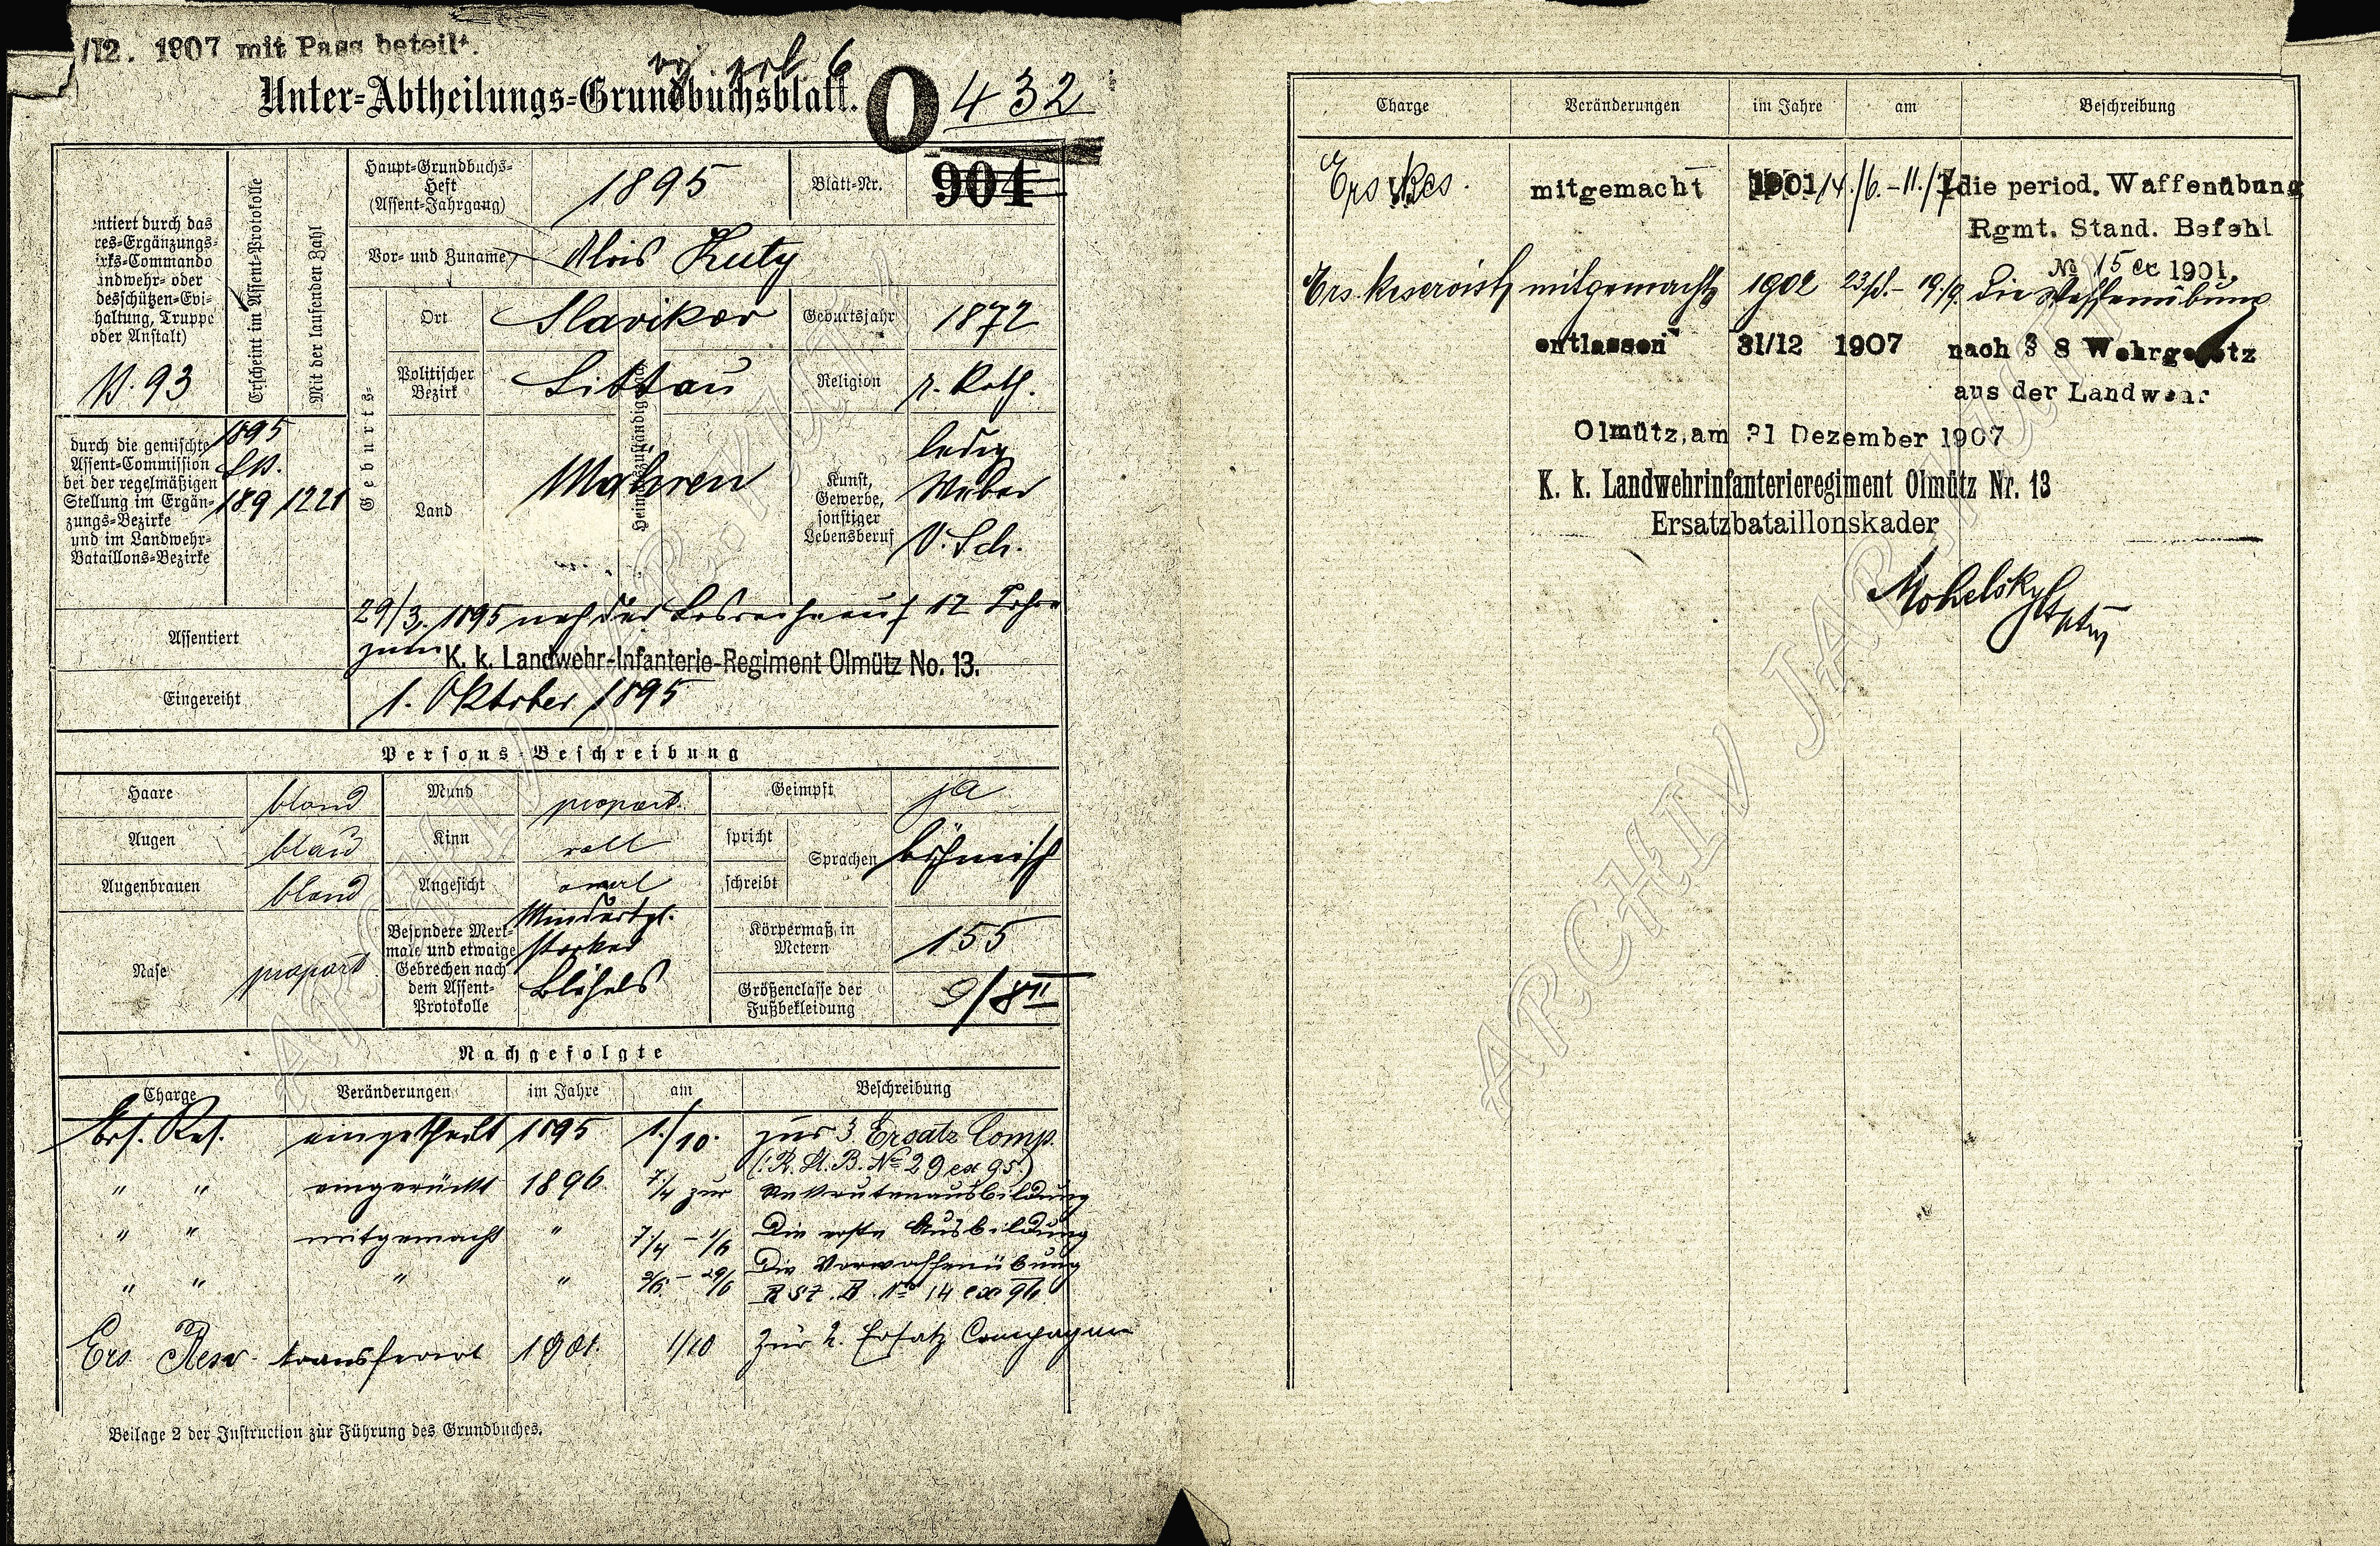 /12. 1907 mit Pass beteilt.
Unter-Abtheilungs-Grundbuchsblatt.
O 432
ntiert durch das
res-Ergänzungs-
irks-Commando
andwehr- oder
desschützen-Evi-
haltung, Truppe
oder Anstalt)
N. 93
Erscheint im Assent-Protokolle
Mit der laufenden Zahl
Haupt-Grundbuchs-
Heft
(Assent-Jahrgang)
1895
Blatt-Nr.
904
Vor- und Zuname
Alois Kuty
Geburts-
Ort
Slavikov
Geburtsjahr
1872
Politischer
Bezirk
Littau
Religion
r. kath.
Land
Mähren
Heimatszuständig
Kunst,
Gewerbe,
sonstiger
Lebensberuf
ledig
Weber
V. Sch.
durch die gemischte
Assent-Commission
bei der regelmäßigen
Stellung im Ergän-
zungs-Bezirke
und im Landwehr-
Bataillons-Bezirke
1895
189
1221
Assentiert
29/3. 1895 nach der Losreihe auf 12 Jahre
zum K. k. Landwehr-Infanterie-Regiment Olmütz No. 13.
Eingereiht
1. Oktober 1895
Persons-Beschreibung
Haare
blond
Mund
proport.
Geimpft
ja
Augen
blau
Kinn
voll
spricht
Sprachen
böhmisch
Augenbrauen
blond
Angesicht
oval
schreibt
Nase
proport
Besondere Merk-
male und etwaige
Gebrechen nach
dem Assent-
Protokolle
Mindertgl.
starker
Blähals
Körpermaß in
Metern
155
Größenclasse der
Fußbekleidung
9/8II
Nachgefolgte
Charge Veränderungen im Jahre am Beschreibung
Ers. Res. eingetheilt 1895 1./10. zur 3 Ersatz Comp.
(:R. St. B. No 29 ex 95:)
" " eingerückt 1896 7/4 zur Rekrutenausbildung
" " mitgemacht " 7/4 - 1/6 die erste Ausbildung
" " " " 2/6. - 29/6 die Vorwaffenübung
R St. B. No 14 ex 96
Ers Resv. transferirt 1901. 1/10 zur 2. Ersatz Compagnie
Beilage 2 der Instruction zur Führung des Grundbuches.
Charge Veränderungen im Jahre am Beschreibung
Ers Res. mitgemacht 1901 14./6.-11./7 die period. Waffenübung
Rgmt. Stand. Befehl
No 15 ex 1901.
Ers. Reservist mitgemacht 1902 23/8.- 19./9. die Waffenübung
entlassen 31/12 1907 nach § 8 Wehrgesetz
aus der Landwehr
Olmütz, am 31 Dezember 1907
K. k. Landwehrinfanterieregiment Olmütz Nr. 13
Ersatzbataillonskader
Mohelsky Hptm
ARCHIV JAR. KUTÝ
ARCHIV JAR. KUTÝ